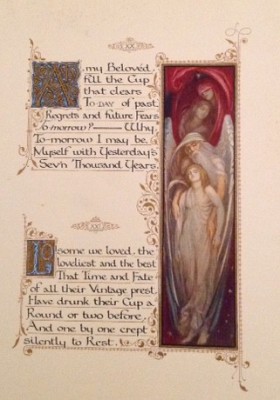 XX
Ah, my Beloved,
fill the Cup
that clears
TO-DAY of past
Regrets and future Fears
To-morrow? — Why,
To-morrow I may be
Myself with Yesterday's
Sev'n Thousand Years.
XXI
Lo! some we loved, the
loveliest and the best
That Time and Fate
of all their Vintage prest,
Have drunk their Cup a
Round or two before,
And one by one crept
silently to Rest.